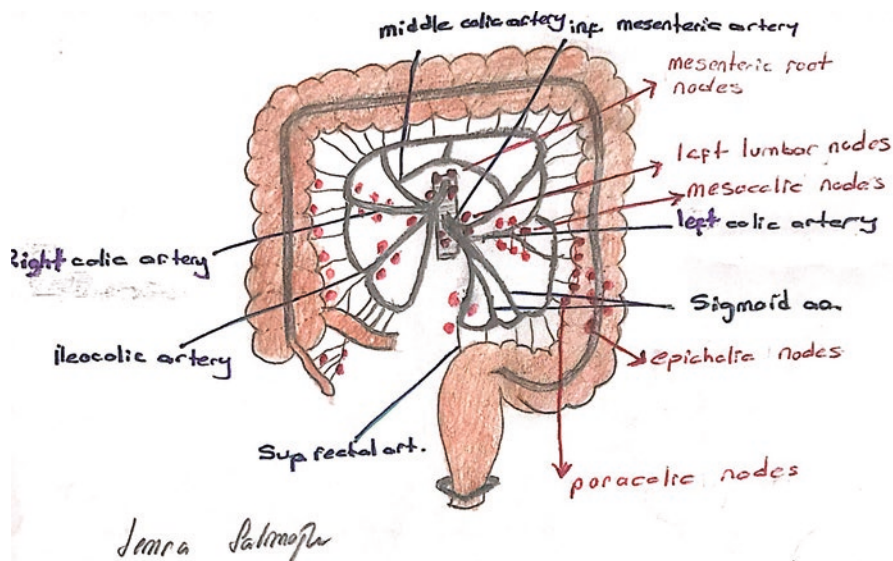 middle colic artery
inf. mesenteric artery
mesenteric root
nodes
left lumbar nodes
mesocolic nodes
left colic artery
Right colic artery
Sigmoid aa.
ileocolic artery
epicholic nodes
Sup rectal art.
paracolic nodes